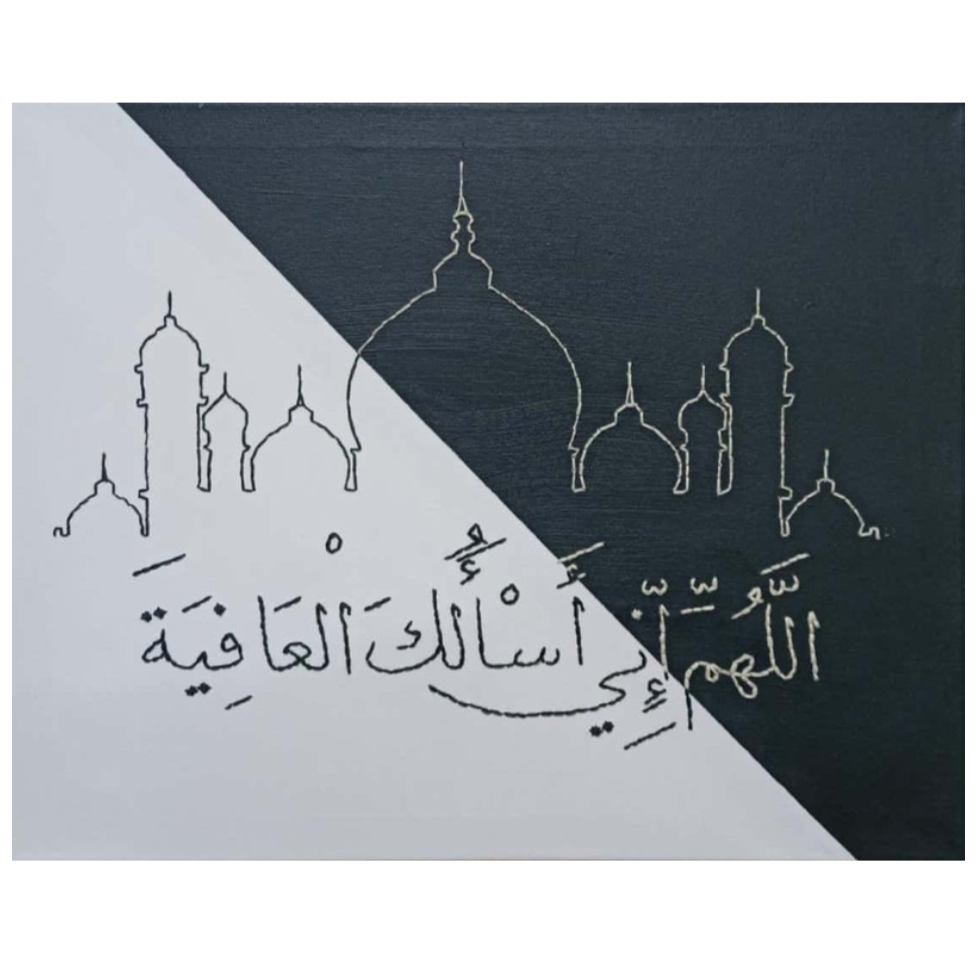 اللَّهُمَّ إِنِّي أَسْأَلُكَ الْعَافِيَةَ